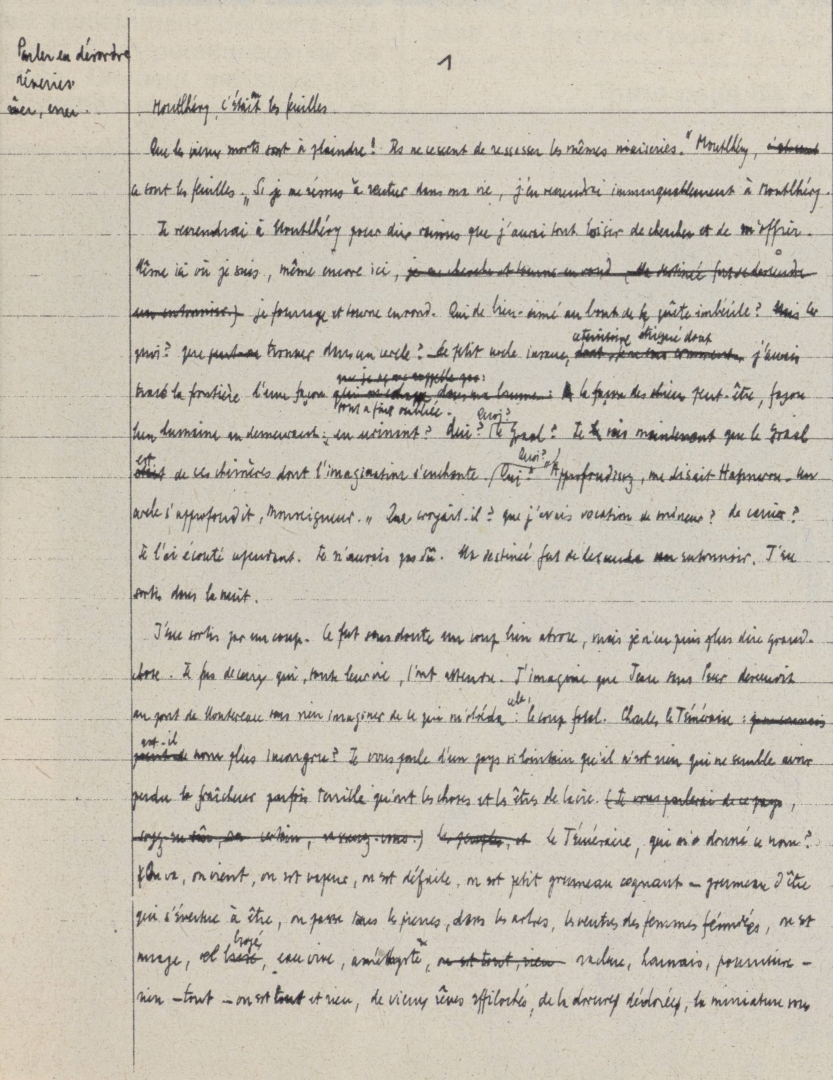 Parler en désordre
rêveries
1
Montlhéry, c'était les feuilles.
Que les vieux morts sont à plaindre! Ils ne cessent de ressasser les mêmes niaiseries. "Montlhéry,
ce sont les feuilles." Si je me résous à rentrer dans ma vie, j'en reviendrai immanquablement à Montlhéry.
Je reviendrai à Montlhéry pour dix raisons que j'aurai tout loisir de chercher et de m'offrir.
Même ici où je suis, même encore ici, je me cherche et tourne en rond (Ma destinée fut de descendre
un entonnoir.) je fourrage et tourne en rond. Qui de bien-aimé au bout de la quête imbécile? Mais
quoi? que peut-on trouver dans un cercle? Le petit cercle insane, cet entonnoir étriqué dont j'aurais
tracé la frontière d'une façon que je ne me rappelle pas: à la façon des chiens peut-être, façon
tout à fait oubliée. Quoi?
bien humaine au demeurant: en urinant? Qui? Le Graal? Je sais maintenant que le Graal
est Quoi?
était de ces chimères dont l'imagination s'enchante. Qui? "Approfondissez, me disait Un
cercle s'approfondit, Monseigneur." Que croyait-il? que j'avais vocation de mineur? de carrier?
Je l'ai écouté cependant. Je n'aurais pas dû. Ma destinée fut de descendre un entonnoir. J'en
sortis dans la nuit.
J'en sortis par un coup. Ce fut sans doute un coup bien atroce, mais je n'en puis plus dire grand-
chose. Je fus de ceux qui, toute leur vie, l'ont attendu. J'imagine que Jean sans Peur devenait
cela:
au pont de Montereau sans rien imaginer de ce qui m'obséda: le coup fatal. Charles le Téméraire:
est-il
nom plus incongru? Je vous parle d'un pays si lointain qu'il n'est rien qui ne semble avoir
perdu la fraîcheur parfois terrible qu'ont les choses et les êtres de la vie. (Je vous parlerai de ce pays,
soyez-en sûr, ) le Téméraire, qui m'a donné ce nom?
On va, on vient, on est vapeur, on est défaite, on est petit grumeau cognant — grumeau d'être
qui s'évertue à être, on passe sous les pierres, dans les arbres, les ventres des femmes fécondées, on est
broyé
nuage, sel, eau vive, améthyste, on est tout, rien raclure, harnais, pourriture —
rien — tout — on est tout et rien, de vieux rêves effilochés, de la dorure dédorée, la miniature sous